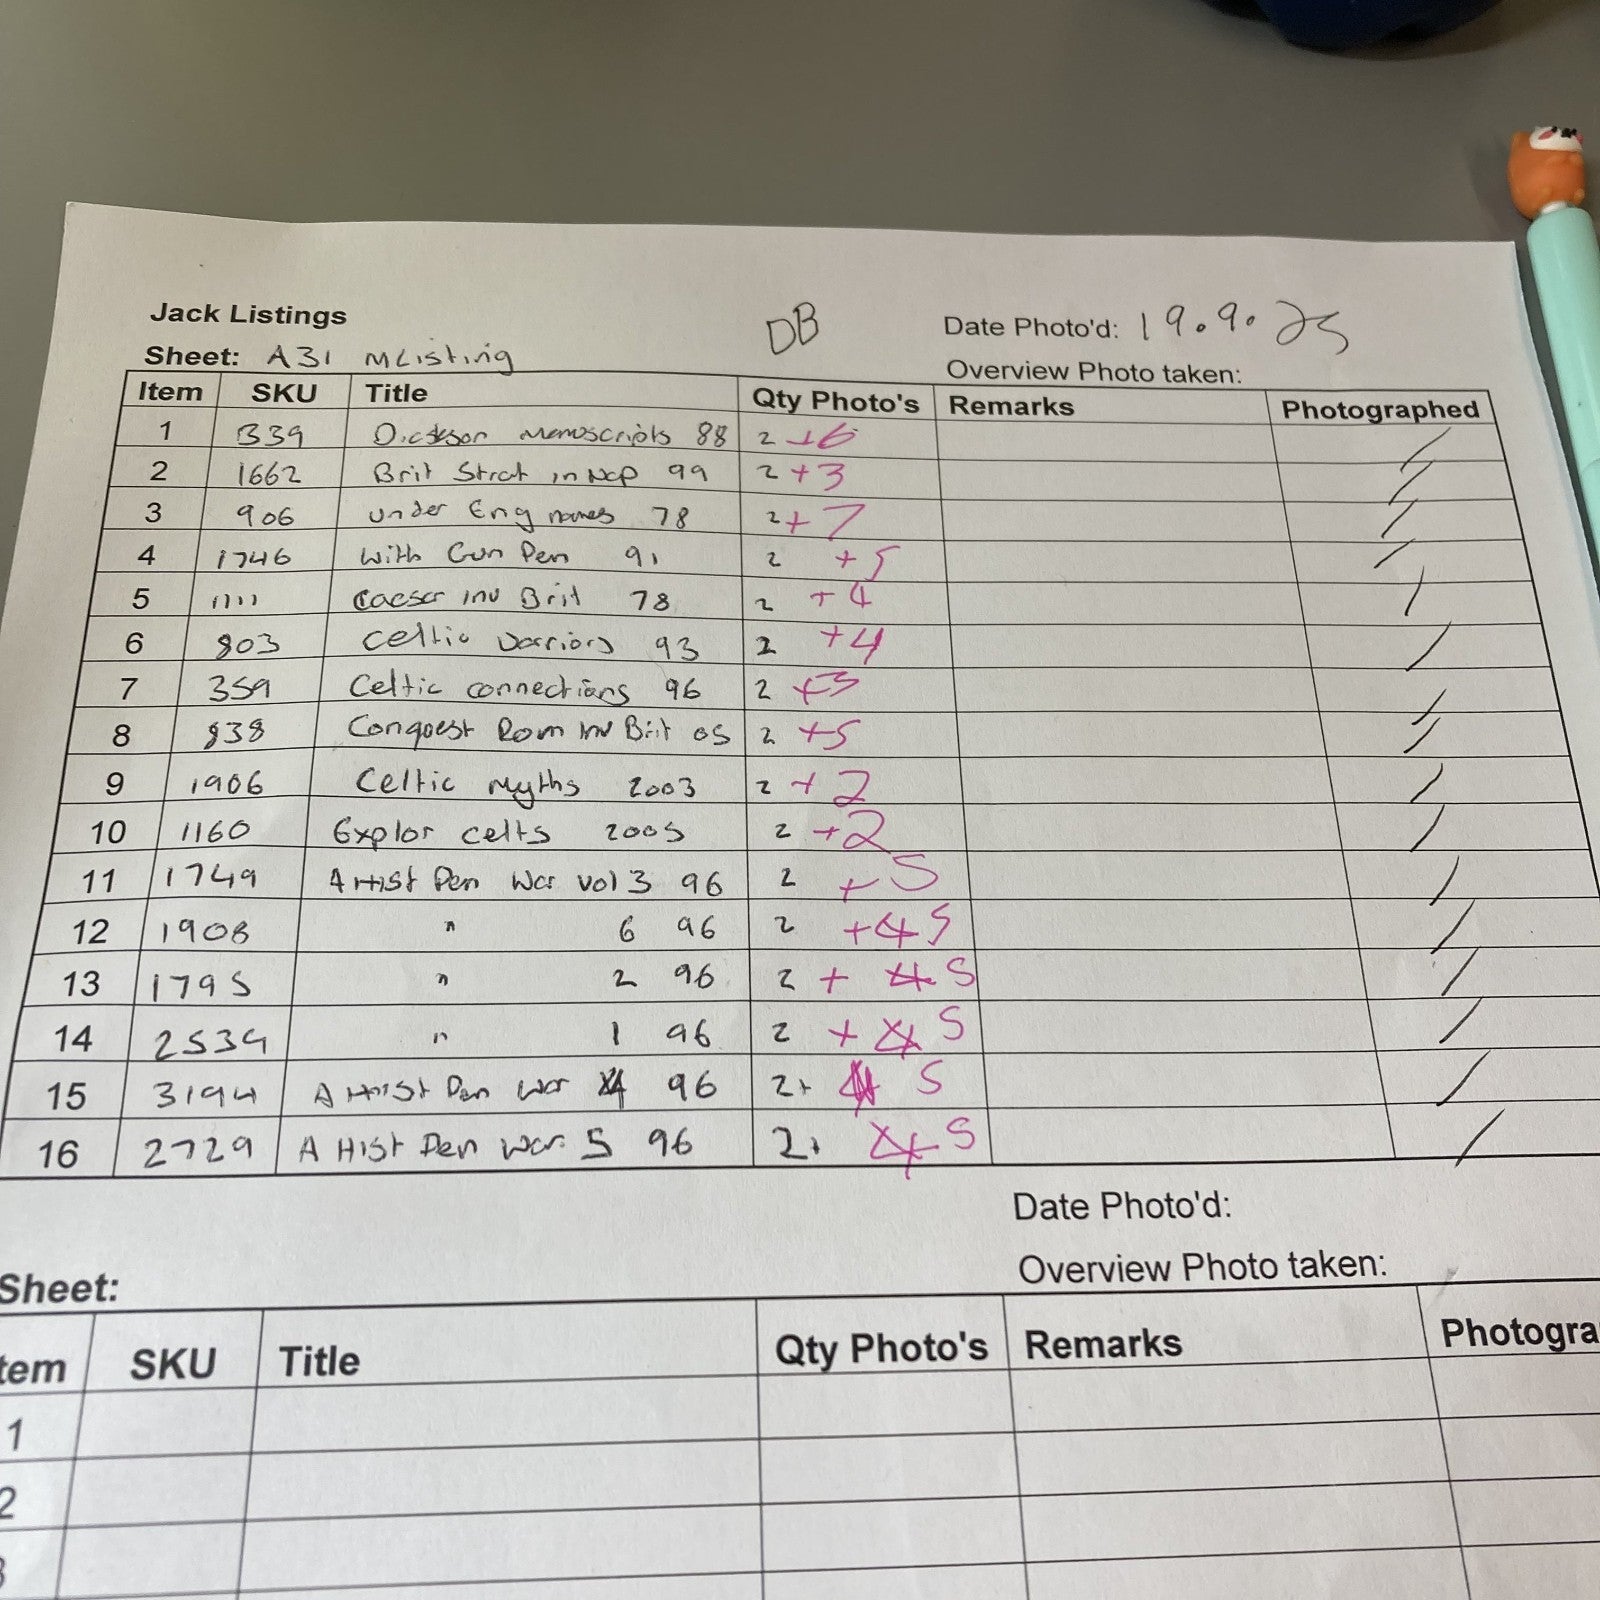 Jack Listings
DB
Date Photo'd: 19.9.25
Sheet: A31 MListing
Overview Photo taken:
Item SKU Title Qty Photo's Remarks Photographed
1 339 Dickson Manuscripts 88 2 +6 /
2 1662 Brit Strat in Nap 99 2 +3 /
3 906 Under Eng names 78 2 +7 /
4 1746 With Gun Pen 91 2 +5 /
5 1111 Caesar Inv Brit 78 2 +4 /
6 803 Celtic Warriors 93 2 +4 /
7 359 Celtic connections 96 2 +3 /
8 838 Conquest Rom Inv Brit 05 2 +5 /
9 1906 Celtic Myths 2003 2 +2 /
10 1160 Explor celts 2005 2 +2 /
11 1749 A Hist Pen War vol 3 96 2 +5 /
12 1908 " 6 96 2 +4 5 /
13 1795 " 2 96 2 + 4 5 /
14 2539 " 1 96 2 + 4 5 /
15 3194 A Hist Pen War 4 96 2+ 4 5 /
16 2729 A Hist Pen War 5 96 2+ 4 5 /
Date Photo'd:
Sheet:
Overview Photo taken:
tem SKU Title Qty Photo's Remarks Photogra
1
2
3